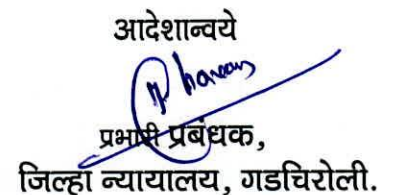 आदेशान्वये
प्रभारी प्रबंधक,
जिल्हा न्यायालय, गडचिरोली.